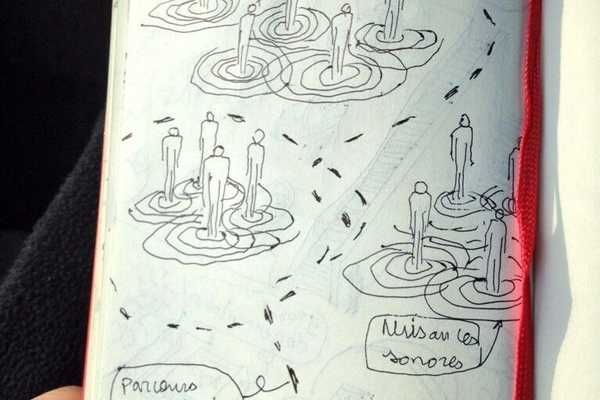 Nuisances
sonores
parcours